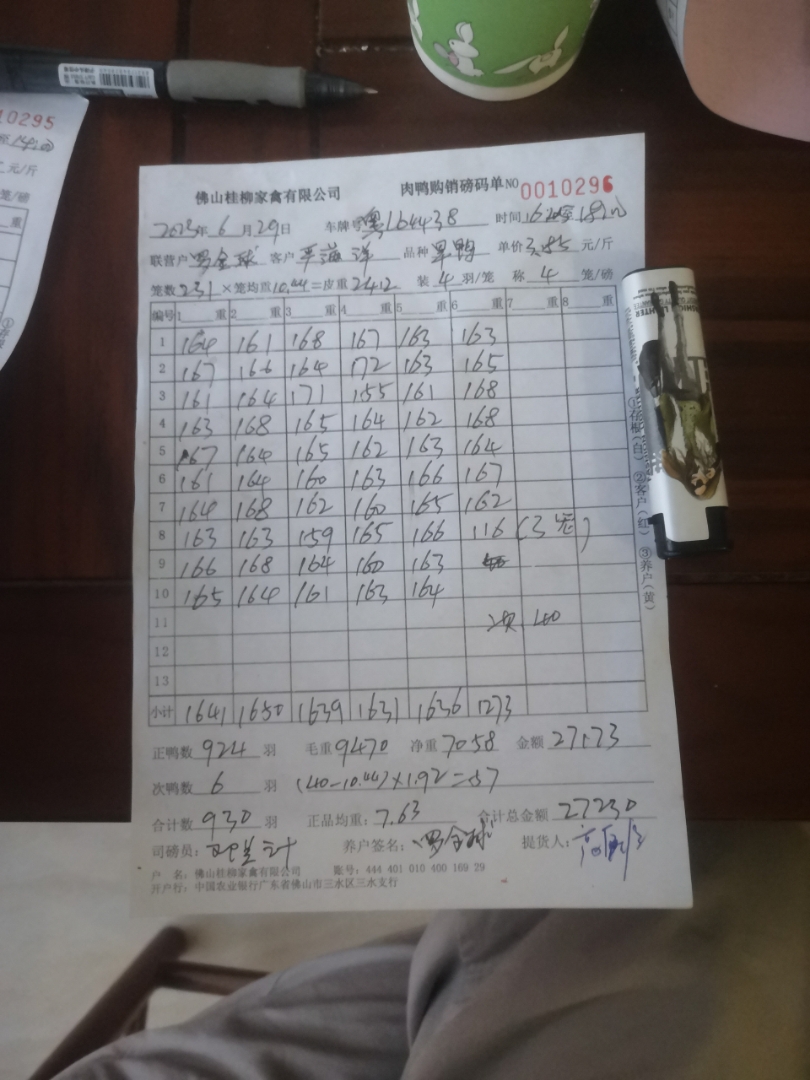 10295
元/斤
笼/磅
重
佛山桂柳家禽有限公司 肉鸭购销磅码单NO 0010296
2023年6月29日 车牌号 粤 164438 时间
联营户 罗全球 客户 海洋 品种 鸭 单价 3.85 元/斤
笼数 231 ×笼均重 10.44 =皮重 2412 装 4 羽/笼 称 4 笼/磅
编号 1 重 2 重 3 重 4 重 5 重 6 重 7 重 8 重
1 164 161 168 167 163 163
2 167 166 164 172 163 165
3 161 164 171 155 161 168
4 163 168 165 164 162 168
5 167 164 165 162 163 164
6 161 164 160 163 166 167
7 164 168 162 160 165 162
8 163 163 159 165 166 116 (3笼)
9 166 168 164 160 163
10 165 164 161 163 164
11 次 40
12
13
小计 1641 1650 1639 1631 1636 1273
正鸭数 924 羽 毛重 9470 净重 7058 金额 27173
次鸭数 6 羽 (40-10.44)×1.92=57
合计数 930 羽 正品均重: 7.63 合计总金额 27230
司磅员: 养户签名: 罗全球 提货人:
户 名: 佛山桂柳家禽有限公司 账号: 444 401 010 400 169 29
开户行: 中国农业银行广东省佛山市三水区三水支行
①存根(白) ②客户(红) ③养户(黄)
LIGHTER